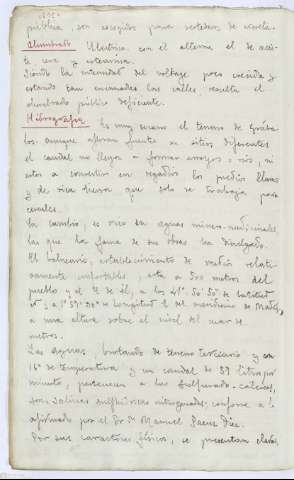 pública, son escogidos para vertedero, de aceite.
Alumbrado Eléctrico con el alterna el de acei-
te, cera y estearina.
Siendo la intensidad del voltage poco crecida y
estando tan enramadas las calles resulta el
alumbrado público deficiente.
Hidrografía. Es muy escaso el terreno de Gráva-
los, aunque afloran fuentes en sitios diferentes
el caudal no llega a formar arroyos o rios, ni
estos a convertir en regadíos los predios llanos
y de rica tierra que solo se trabaja para
cereales.
En cambio, es rico en aguas minero-medicinales,
las que la fama de sus obras ha divulgado.
El balneario, establecimiento de visitas relati-
vamente confortable, esta a dos metros del
pueblo y el E. de él, a los 41° 56' 50" de latitud
y a 1° 59' de longitud E. del meridiano de Madrid,
a una altura sobre el nivel del mar de
metros.
Las aguas, brotando de terreno terciario y con
16° de temperatura y un caudal de 89 litros por
minuto, pertenecen a las sulfurado-calcicas,
son salinas sulfhídricas nitrogenadas, conforme a lo
afirmado por el Dr. Dn. Manuel Saenz Diez.
Por sus caracteres físicos, se presentan claras,